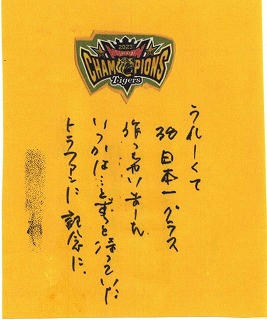 2023
CHAMPIONS
Tigers
うれしくて
日本一グラス
作っちゃいました
いつかは…とずっと待っていた
トラファンに記念に.